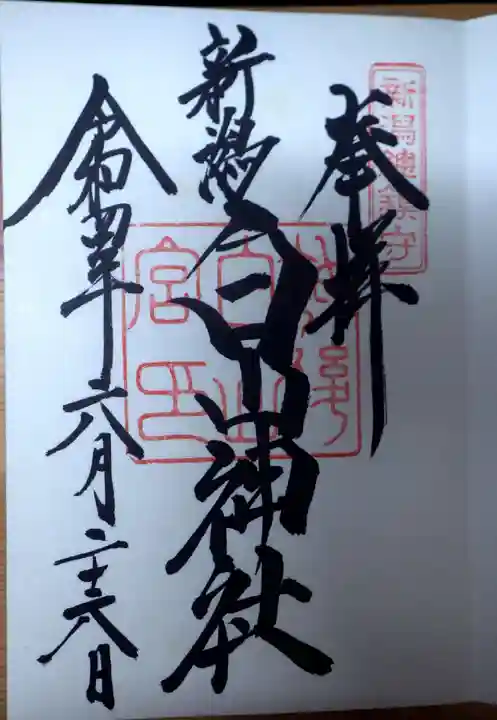 新潟總鎮守
奉拝
新潟白山神社
令和四年六月二十六日